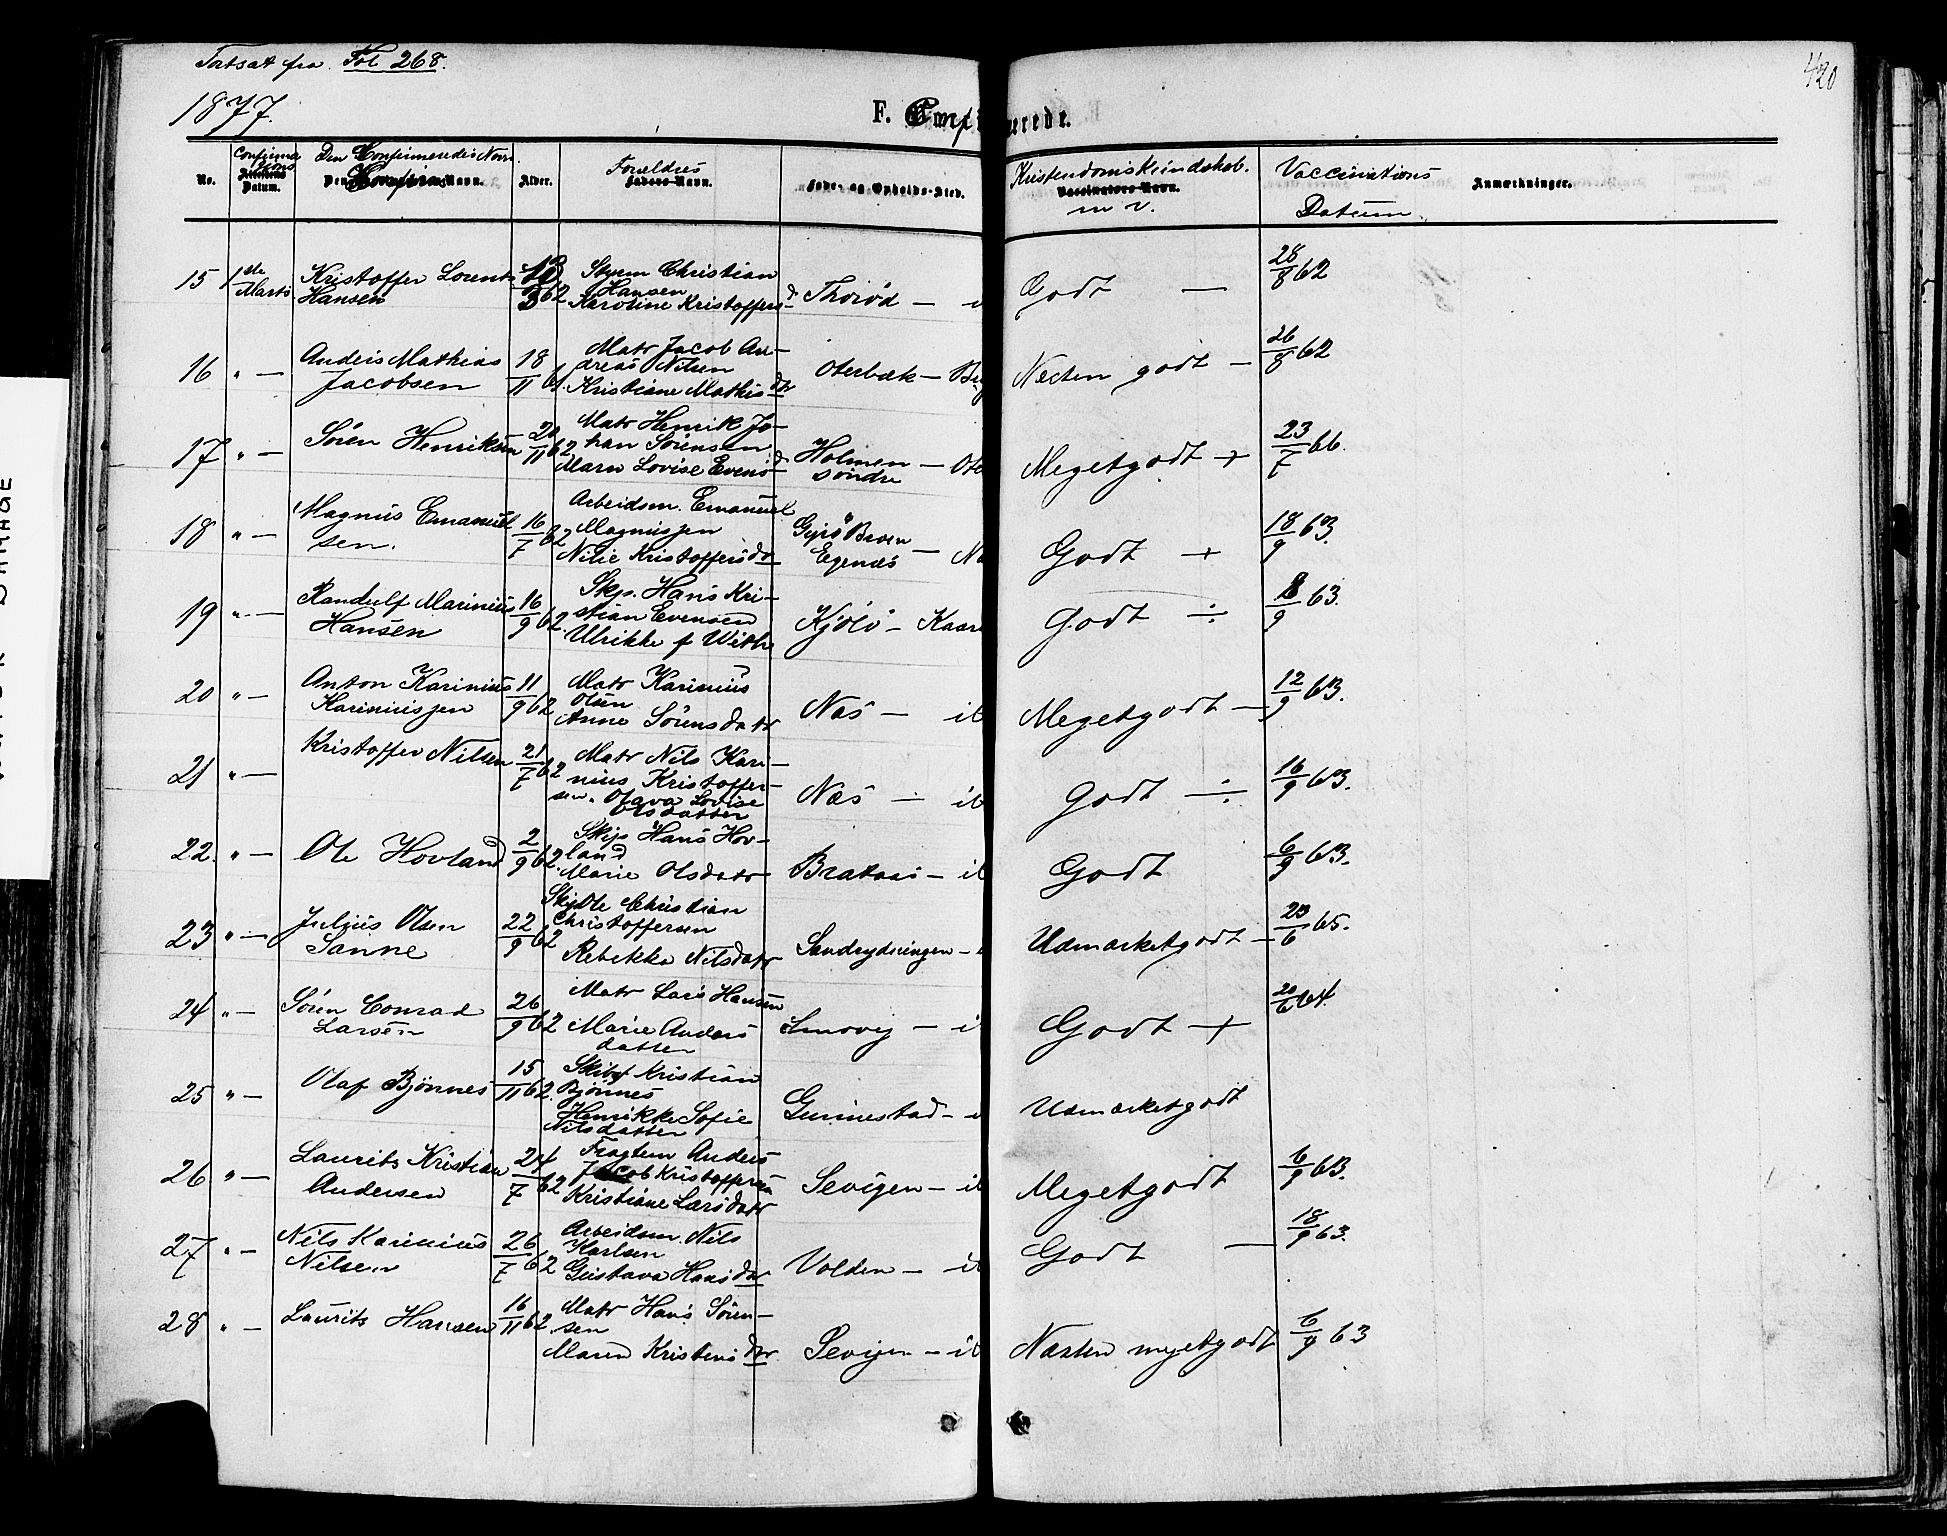 Fortsat fra Fol 268.
420
1877.
F. Confirmerede.
No.
Confirmations
Datum.
Den Confirmeredes Navn.
Alder.
Forældres
Faders Navn.
Føde- og Opholds-Sted.
Kristendomskundskab.
m v.
Vaccinations
Datum.
Anmærkninger.
15 1ste Marts Kristoffer Lorents Hansen 62 Styrm Christian Hansen Karoline Kristoffersd Thorød — Godt — 28/8 62
16 " — Anders Mathias Jacobsen 18/11 61. Matr Jacob Andreas Nilsen Kristiane Mathisdtr Oterbæk — Næsten godt — 26/8 62
17 " — Søren Henriksen 20/11 62 Matr Henrik Johan Sørensen Maren Lovise Evensd Holmen søndre — Meget godt + 23/7 66.
18 " — Magnus Emanuelsen. 16/7 62 Arbeidsm. Emanuel Magnussen Nilie Kristoffersdtr Egenæs — Godt + 18/9 63.
19 " — Randulf Marinius Hansen 16/9 62. Skp. Hans Kristian Evensen Ulrikke f Withe Kjøłø — Kaare Godt ÷ 8/9 63.
20 " — Anton Karinius Kariniussen 11/9 62 Matr Karinius Olsen Anne Sørensdatr Næs — Meget godt — 12/9 63.
21 " — Kristoffer Nilsen 21/7 62 Matr Nils Karinius Kristoffersen. Olava Lovise Olsdatter Næs — Godt ÷ 16/9 63.
22. " — Ole Hovland 2/9 62. Skip Hans Hovland Marie Olsdatr Brataas — Godt 6/9 63.
23 " — Julius Olsen Sanne 22/9 62 Ole Christian Christoffersen Rebekka Nilsdatr Sandrydningen — Udmærket godt — 23/6 65.
24 " — Søren Conrad Larsen 26/9 62 Matr Lars Hansen Marie Andersdatter Smovig — Godt + 20/6 64.
25 " — Olaf Bjønnes 15/11 62. Kristian Bjønnes Henrikke Sofie Nilsdatter Gunnestad — Udmærket godt
26 " — Laurits Kristian Andersen 24/7 62 Fragtem Anders Jacob Kristoffersen Kristiane Larsdatr Sevigen — Meget godt 6/9 63.
27 " — Nils Karinius Nilsen 26/7 62 Arbeidsm. Nils Karlsen Gustava Hansdtr Volden — Godt — 18/9 63.
28 " — Laurits Hansen 16/11 62. Matr Hans Sørensen Maren Kristensdtr Sevigen — Næsten meget godt 6/9 63